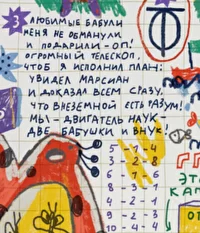 3
ЛЮБИМЫЕ БАБУЛИ
МЕНЯ НЕ ОБМАНУЛИ
И ПОДАРИЛИ - ОП!
ОГРОМНЫЙ ТЕЛЕСКОП,
ЧТОБ Я ИСПОЛНИЛ ПЛАН:
УВИДЕЛ МАРСИАН
И ДОКАЗАЛ ВСЕМ СРАЗУ,
ЧТО ВНЕЗЕМНОЙ ЕСТЬ РАЗУМ!
МЫ - ДВИГАТЕЛЬ НАУК -
ДВЕ БАБУШКИ И ВНУК!
ЭТ
КАП